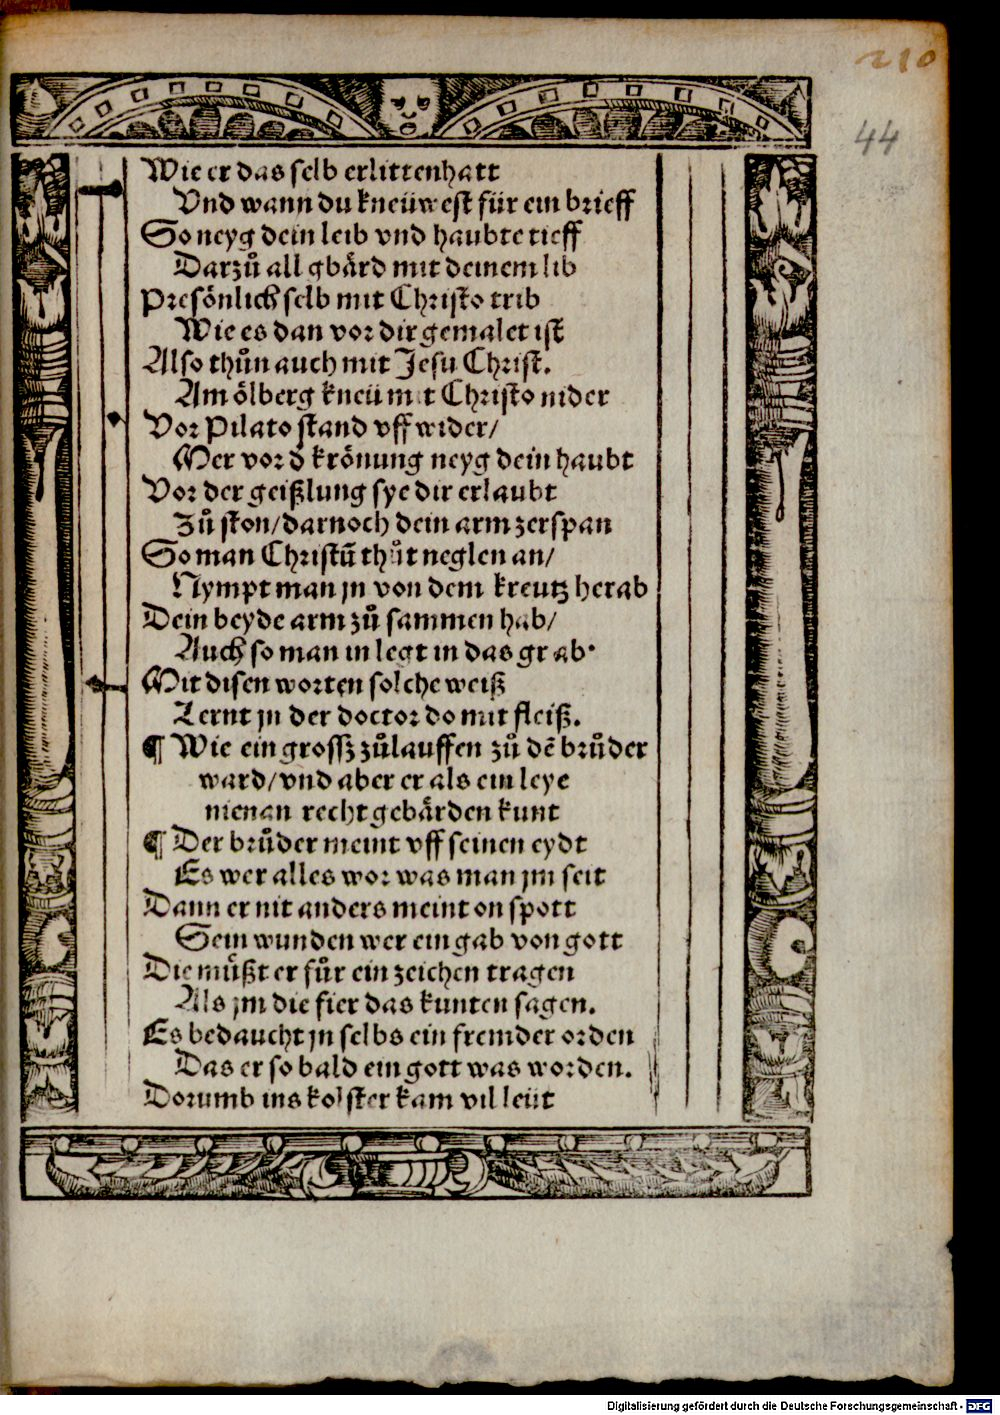 210
44
Wie er das selb erlittenhatt
Vnd wann du kneüwest für ein brieff
So neyg dein leib vnd haubte tieff
Darzuͦ all gbaͤrd mit deinem lib
Presoͤnlich selb mit Christo trib
Wie es dan vor dir gemalet ist
Also thuͦn auch mit Jesu Christ.
Am oͤlberg kneü mit Christo nider
Vor Pilato stand vff wider/
Mer vor d̄ kroͤnung neyg dein haubt
Vor der geißlung sye dir erlaubt
Zuͦ ston/darnoch dein arm zerspan
So man Christū thuͦt neglen an/
Nympt man jn von dem kreutz herab
Dein beyde arm zuͦ sammen hab/
Auch so man in legt in das grab·
Mit disen worten solche weiß
Lernt jn der doctor do mit fleiß.
¶ Wie ein grossz zuͦlauffen zuͦ dē bruͦder
ward/vnd aber er als ein leye
nienan recht gebaͤrden kunt
¶ Der bruͦder meint vff seinen eydt
Es wer alles wor was man jm seit
Dann er nit anders meint on spott
Sein wunden wer ein gab von gott
Die muͤßt er fuͤr ein zeichen tragen
Als jm die fier das kunten sagen.
Es bedaucht jn selbs ein fremder orden
Das er so bald ein gott was worden.
Dorumb ins kolster kam vil leüt
Digitalisierung gefördert durch die Deutsche Forschungsgemeinschaft - DFG